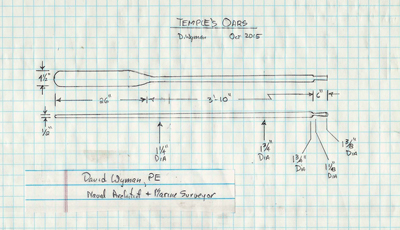 TEMPLE'S OARS
D. Wyman Oct 2015
4½"
26" 3'-10" 6"
½"
1¼"
DIA
1¾"
DIA
1¾"
DIA
1⅜"
DIA
David Wyman, PE
Naval Architect + Marine Surveyor